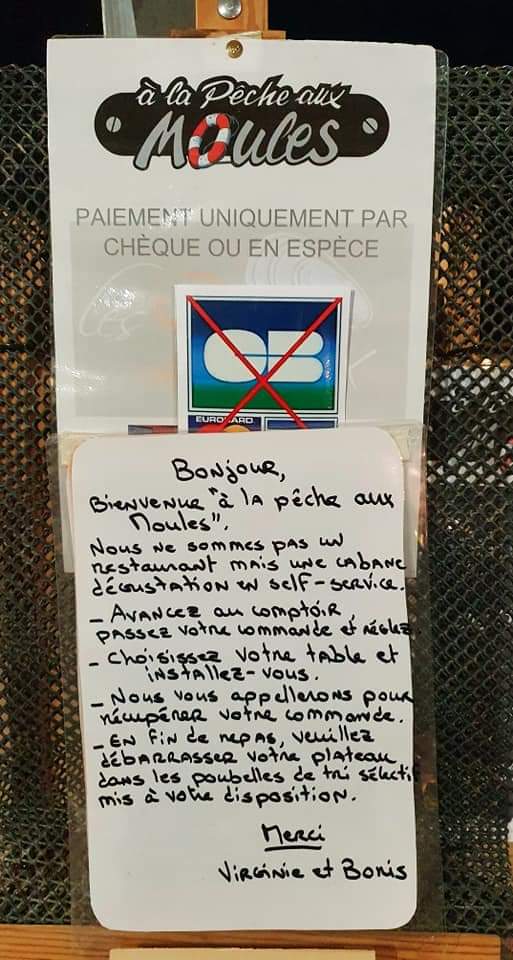 à la Pêche aux
Moules
PAIEMENT UNIQUEMENT PAR
CHÈQUE OU EN ESPÈCE
CB
EUROCARD
Bonjour,
Bienvenue "à la pêche aux
Moules".
Nous ne sommes pas un
restaurant mais une cabane
dégustation en self-service.
- Avancez au comptoir,
passez votre commande et réglez
- Choisissez votre table et
installez-vous.
- Nous vous appellerons pour
récupérer votre commande.
- En fin de repas, veuillez
débarrasser votre plateau
dans les poubelles de tri sélectif
mis à votre disposition.
Merci
Virginie et Boris